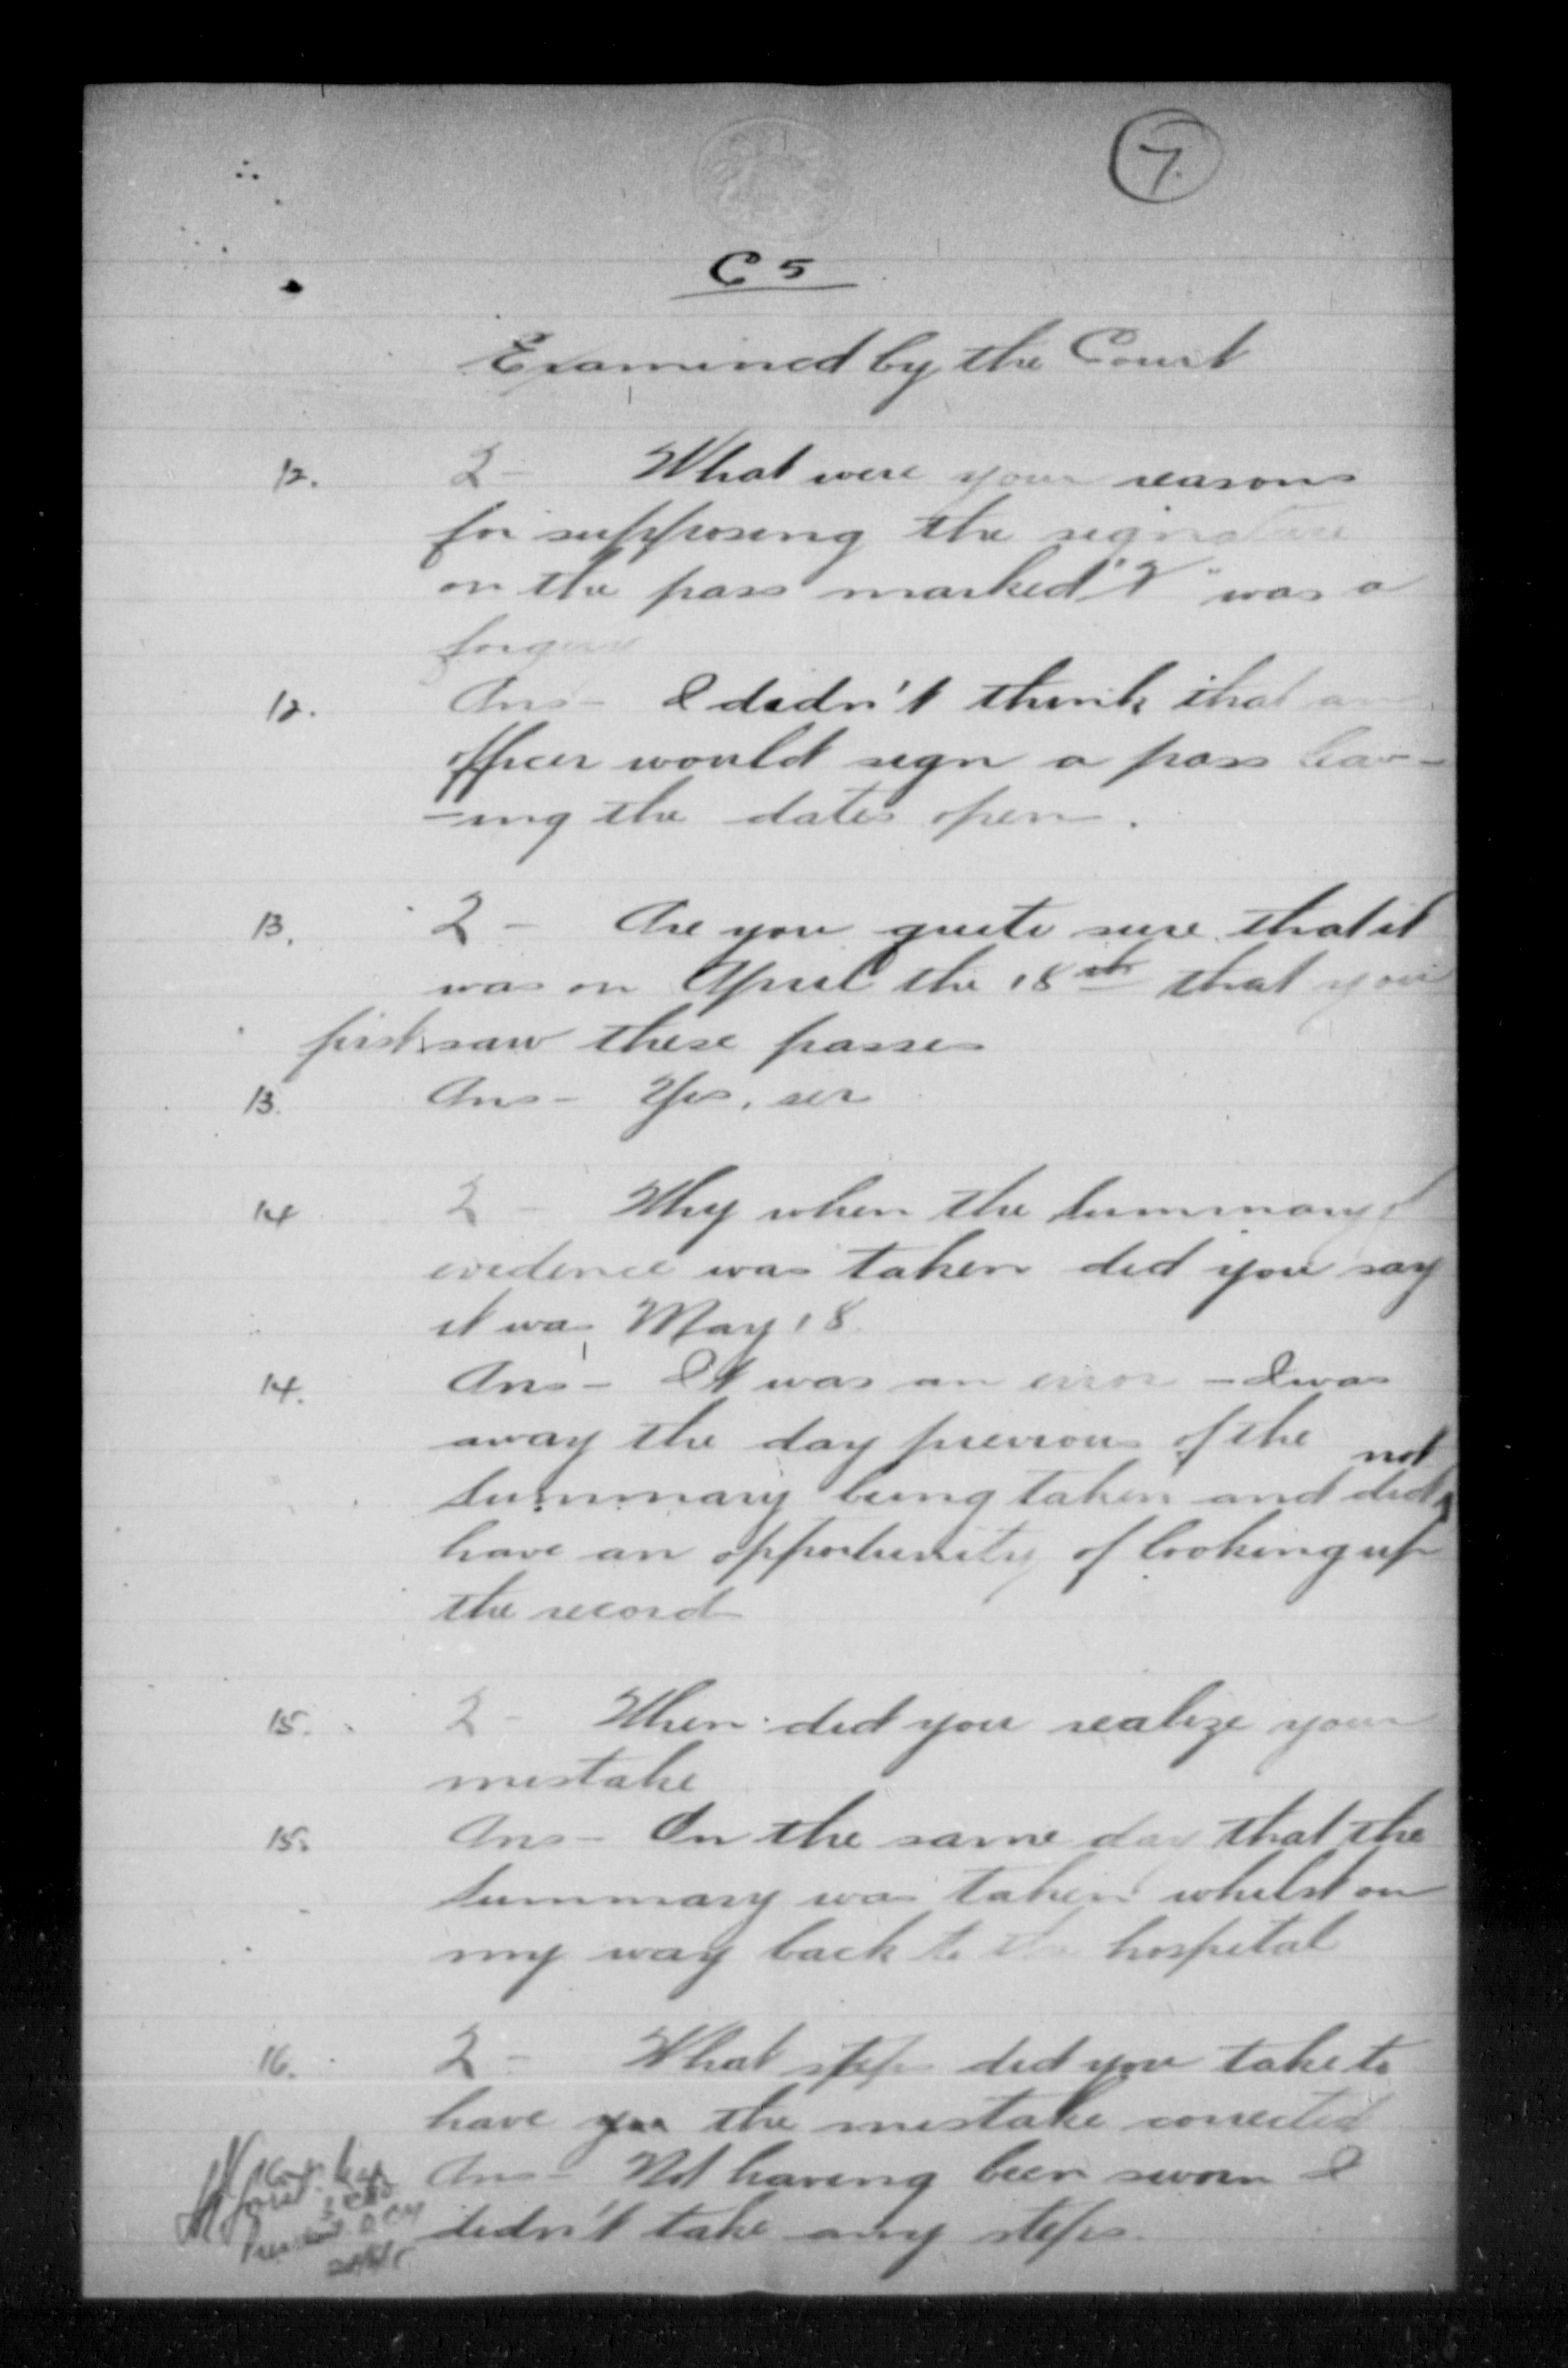 7.
C 5
Examined by the Court
12. Q - What were your reasons
for supposing the signature
on the pass marked " " was a
12. Ans - I didn't think that an
officer would sign a pass leav-
-ing the dates open.
13. Q - Are you quite sure that it
was on April the 18th that you
first saw these passes
13. Ans - Yes, sir
14 Q - Why when the summary of
evidence was taken did you say
it was May 18
14. Ans - It was an error - I was
away the day previous of the
summary being taken and did not
have an opportunity of looking up
the record
15. Q - When did you realize your
mistake
15. Ans - On the same day that the
summary was taken whilst on
my way back to the hospital
16. Q - What steps did you take to
have you the mistake corrected
Ans - Not having been sworn I
didn't take any steps.
President DCM